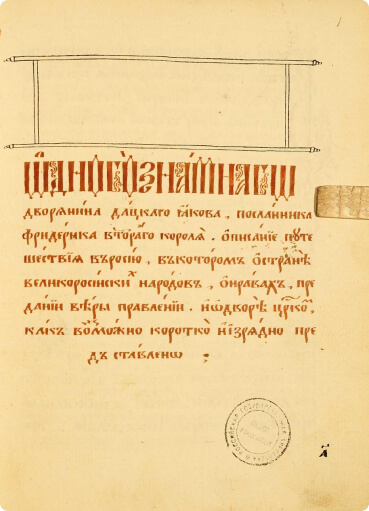 Ѿ ЕДНОГѠ ЗНАТНАГѠ
дворѧнина дацкаго ꙗкова, посланника
фридерика втораго королѧ. ѡписанїе путе
шествїѧ въросїю, вькоторомъ ѡстранѣ
великоросїискиⷯ народовъ, ѡнравахъ, пре
данїи вѣры правленїи. иѡдворѣ цр҃ко,
какъ воⷥможно коротко иизрѧдно пре
дъставлено :